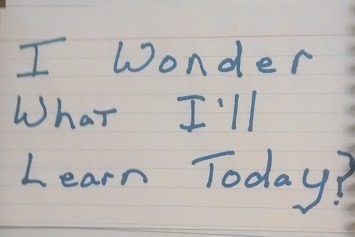 I Wonder
What I'll
Learn Today?